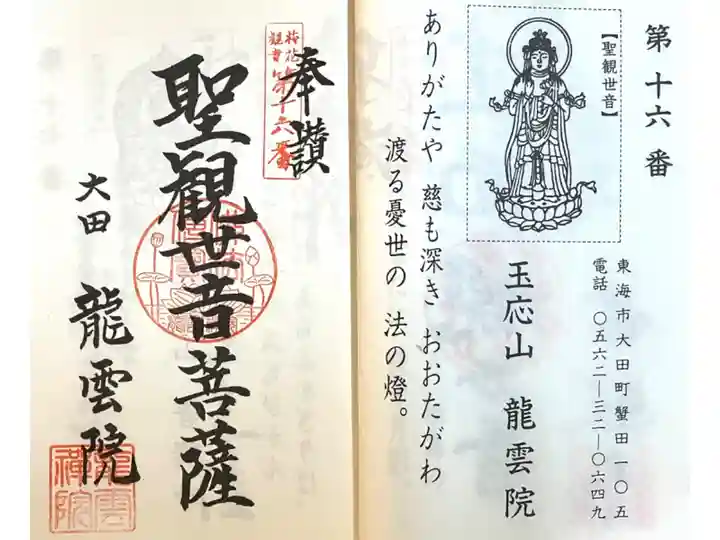 第十六番
【聖観世音】
東海市大田町蟹田一〇五
電話 〇五六二―三二―〇六四九
玉応山 龍雲院
ありがたや 慈も深き おおたがわ
渡る憂世の 法の燈。
奉讃
梅花観音第十六番
聖観世音菩薩
大田 龍雲院
龍雲禅院